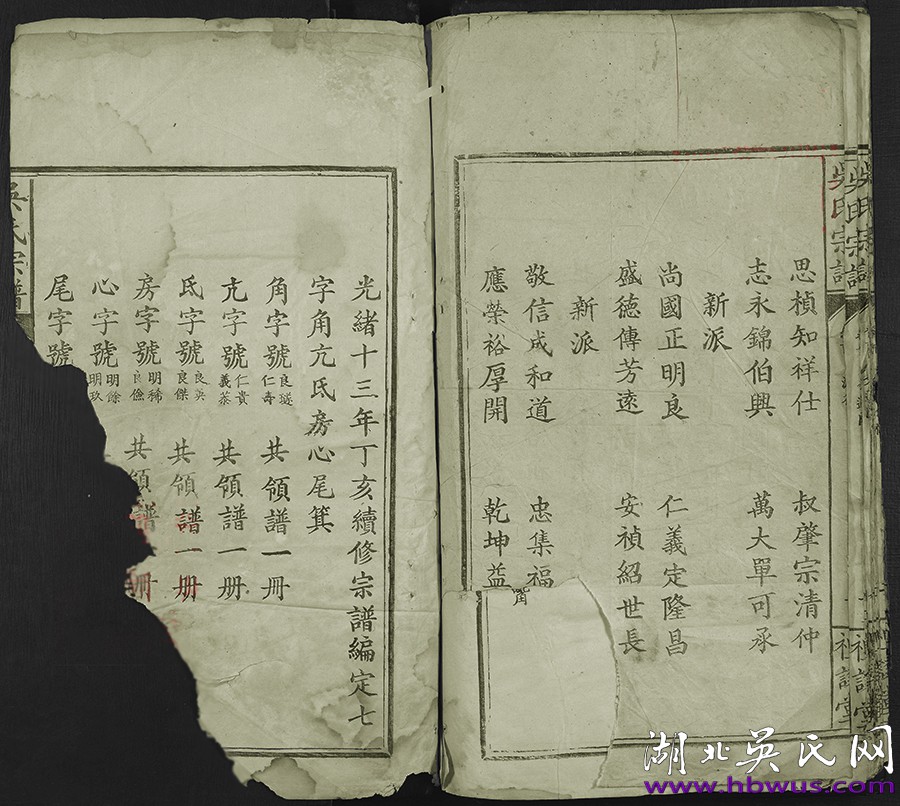 吳氏宗譜
思禎知祥仕 叔肇宗清仲
志永錦伯興 萬大單可承
新派
尚國正明良 仁義定隆昌
盛德傳芳遠 安禎紹世長
新派
敬信成和道 忠集福
應榮裕厚開 乾坤益
角
光緒十三年丁亥續修宗譜編定七
字角亢氐房心尾箕
角字號 良璲 仁壽 共領譜一冊
亢字號 仁貴 義泰 共領譜一冊
氐字號 良英 良傑 共領譜一冊
房字號 明稀 良儉 共領譜一冊
心字號 明餘 明玖
尾字號
吳氏宗譜
湖北吴氏网
www.hbwus.com